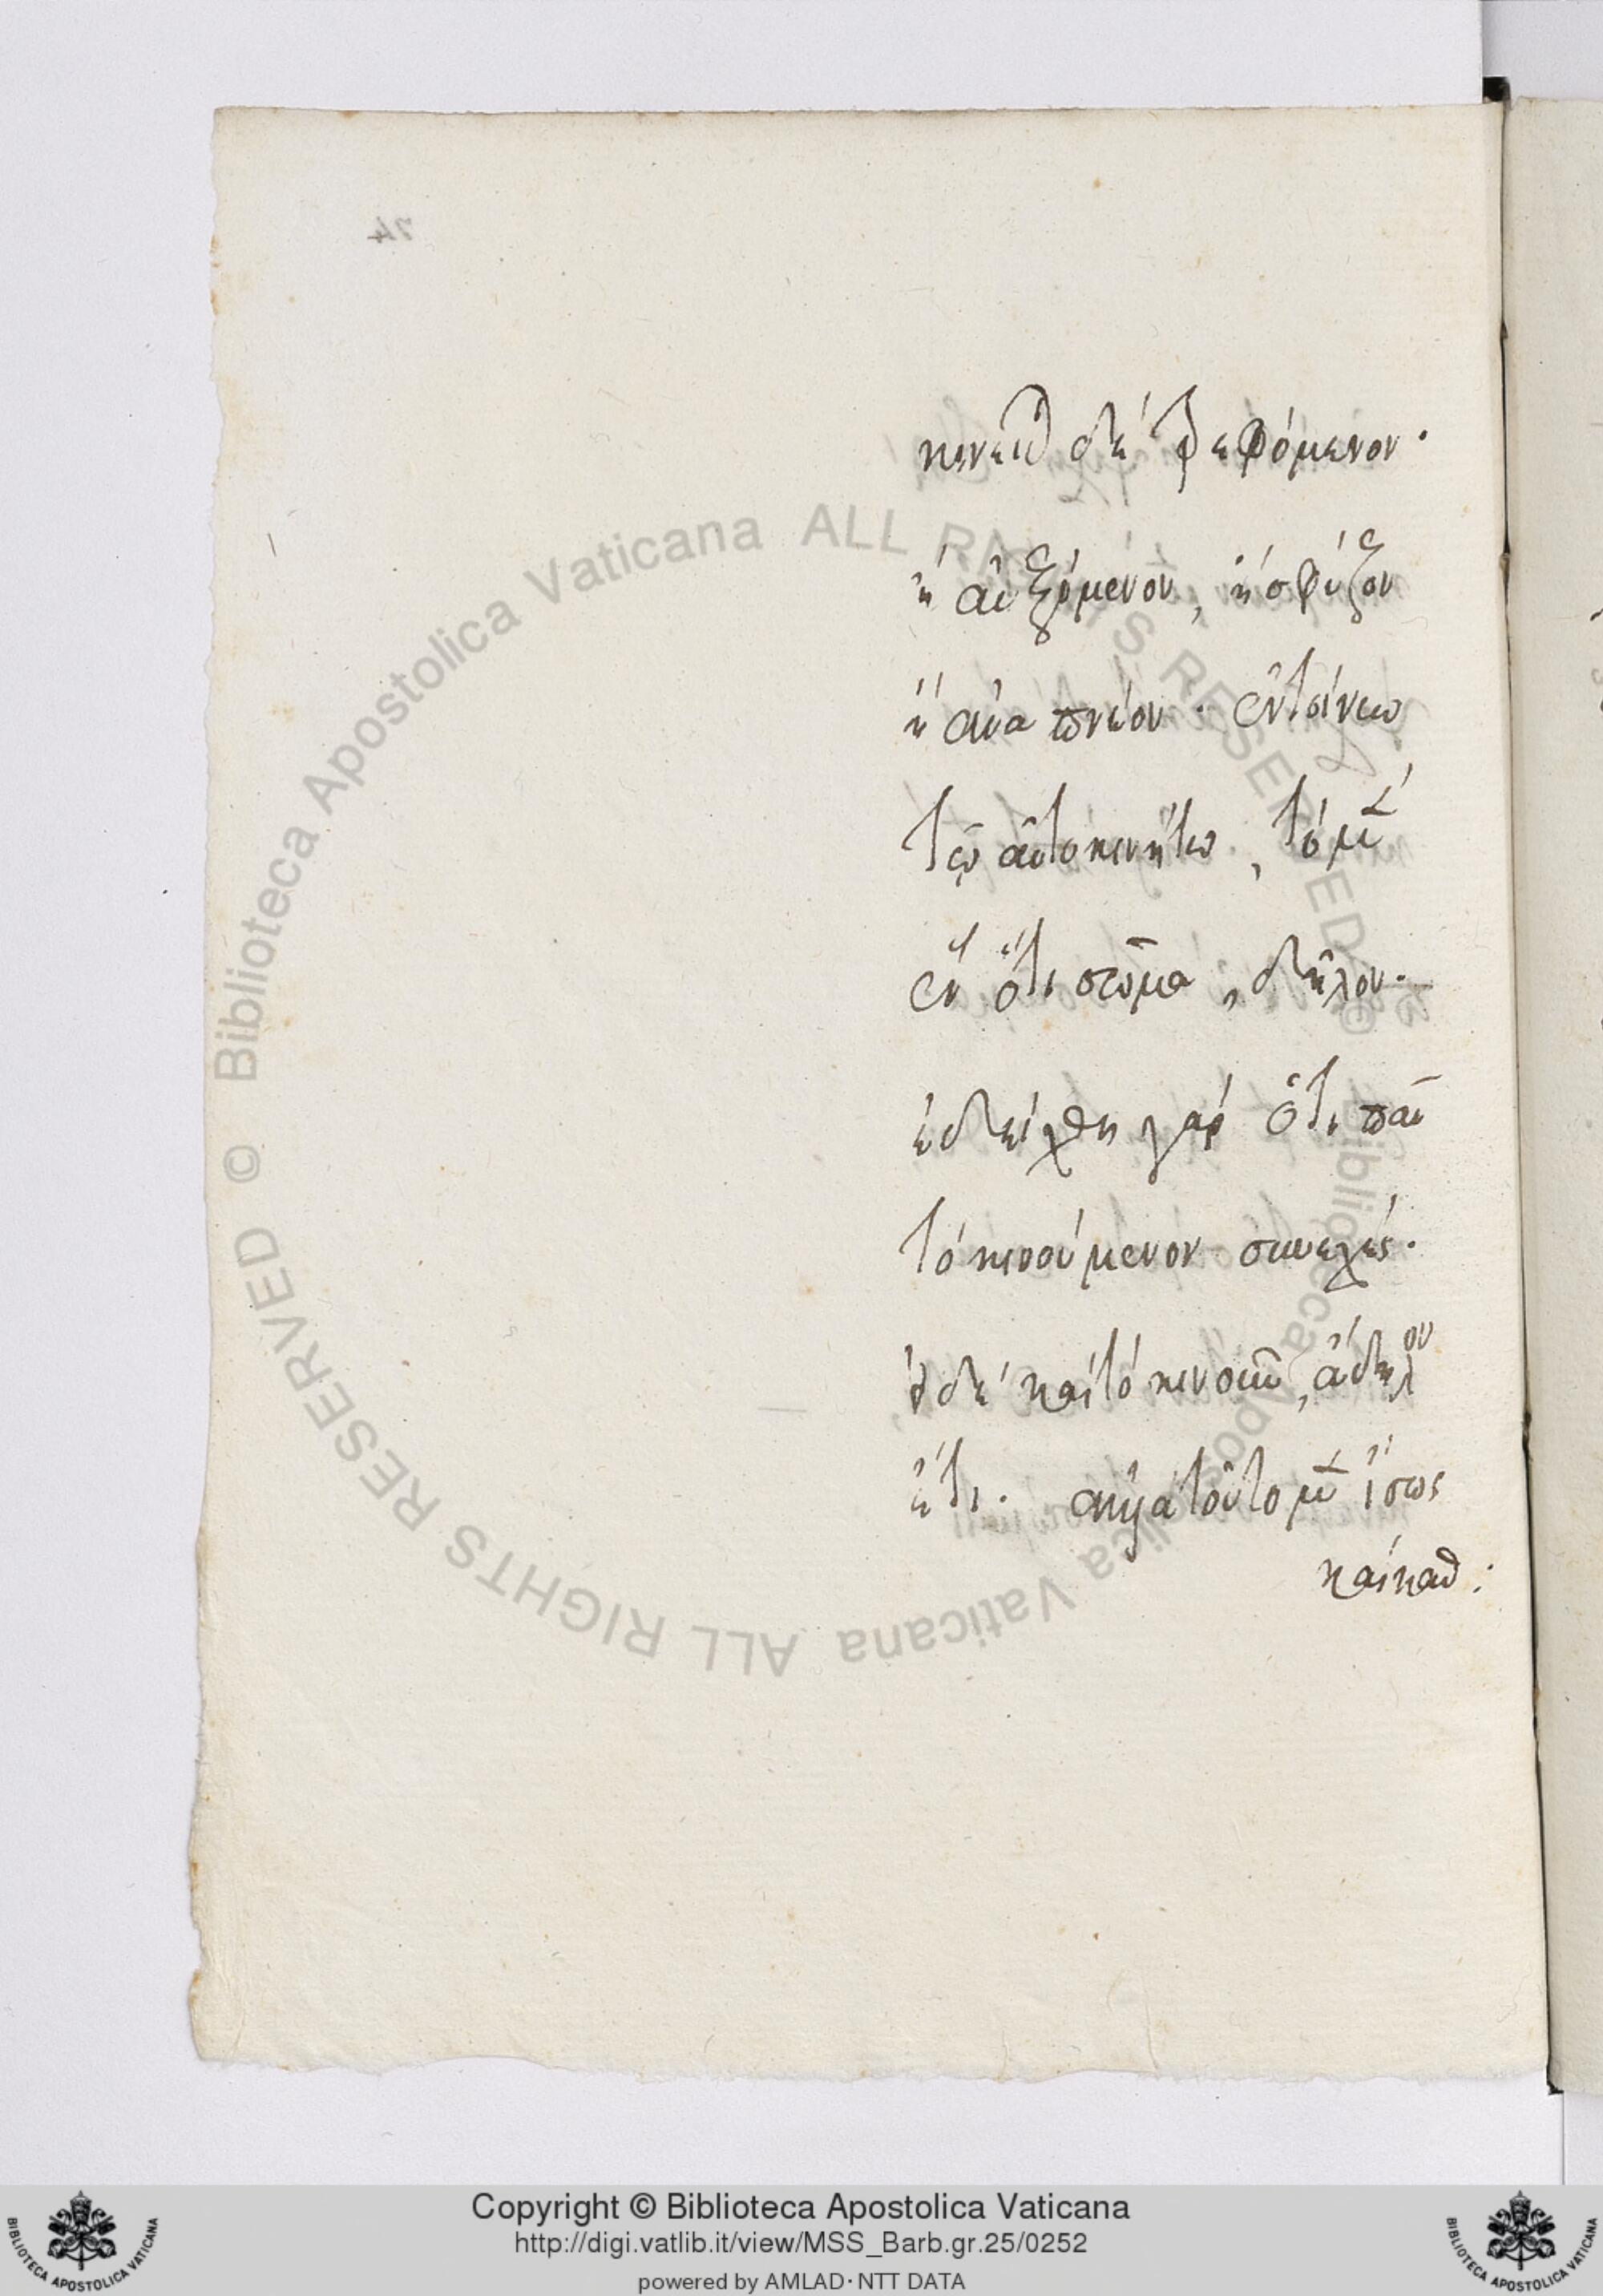 κινεῖται δὲ τρεφόμενον·
ἢ αὐξόμενον, ἢ σφύζον
ἢ ἀναπνέον· ἐν τοίνυν
τῷ αὐτοκινήτῳ, τὸ μὲν
ἓν ὅτι σῶμα, δῆλον·
ἐδείχθη γὰρ ὅτι πᾶν
τὸ κινούμενον συνεχές·
εἰ δὲ καὶ τὸ κινοῦν, ἄδηλον
ἔτι. ἀλλὰ τοῦτο μὲν ἴσως
καὶ καθ:
74
Biblioteca Apostolica Vaticana ALL RIGHTS RESERVED ©
Biblioteca Apostolica Vaticana ALL RIGHTS RESERVED ©
Copyright © Biblioteca Apostolica Vaticana
http://digi.vatlib.it/view/MSS_Barb.gr.25/0252
powered by AMLAD·NTT DATA
BIBLIOTECA APOSTOLICA VATICANA
BIBLIOTECA APOSTOLICA VATICANA